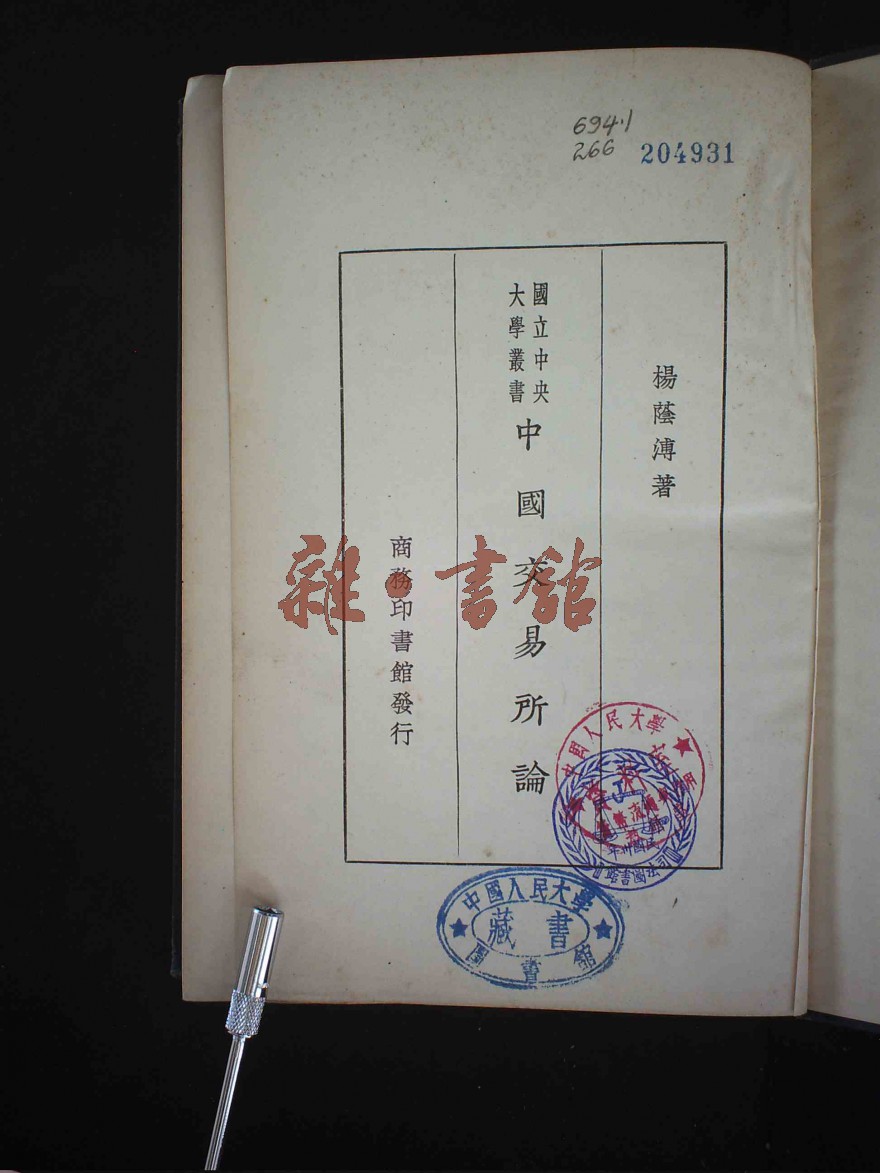 694.1
266
204931
楊蔭溥著
國立中央
大學叢書
中國交易所論
商務印書館發行
雜·書館
中國人民大學
中國人民大學
藏書
圖書館